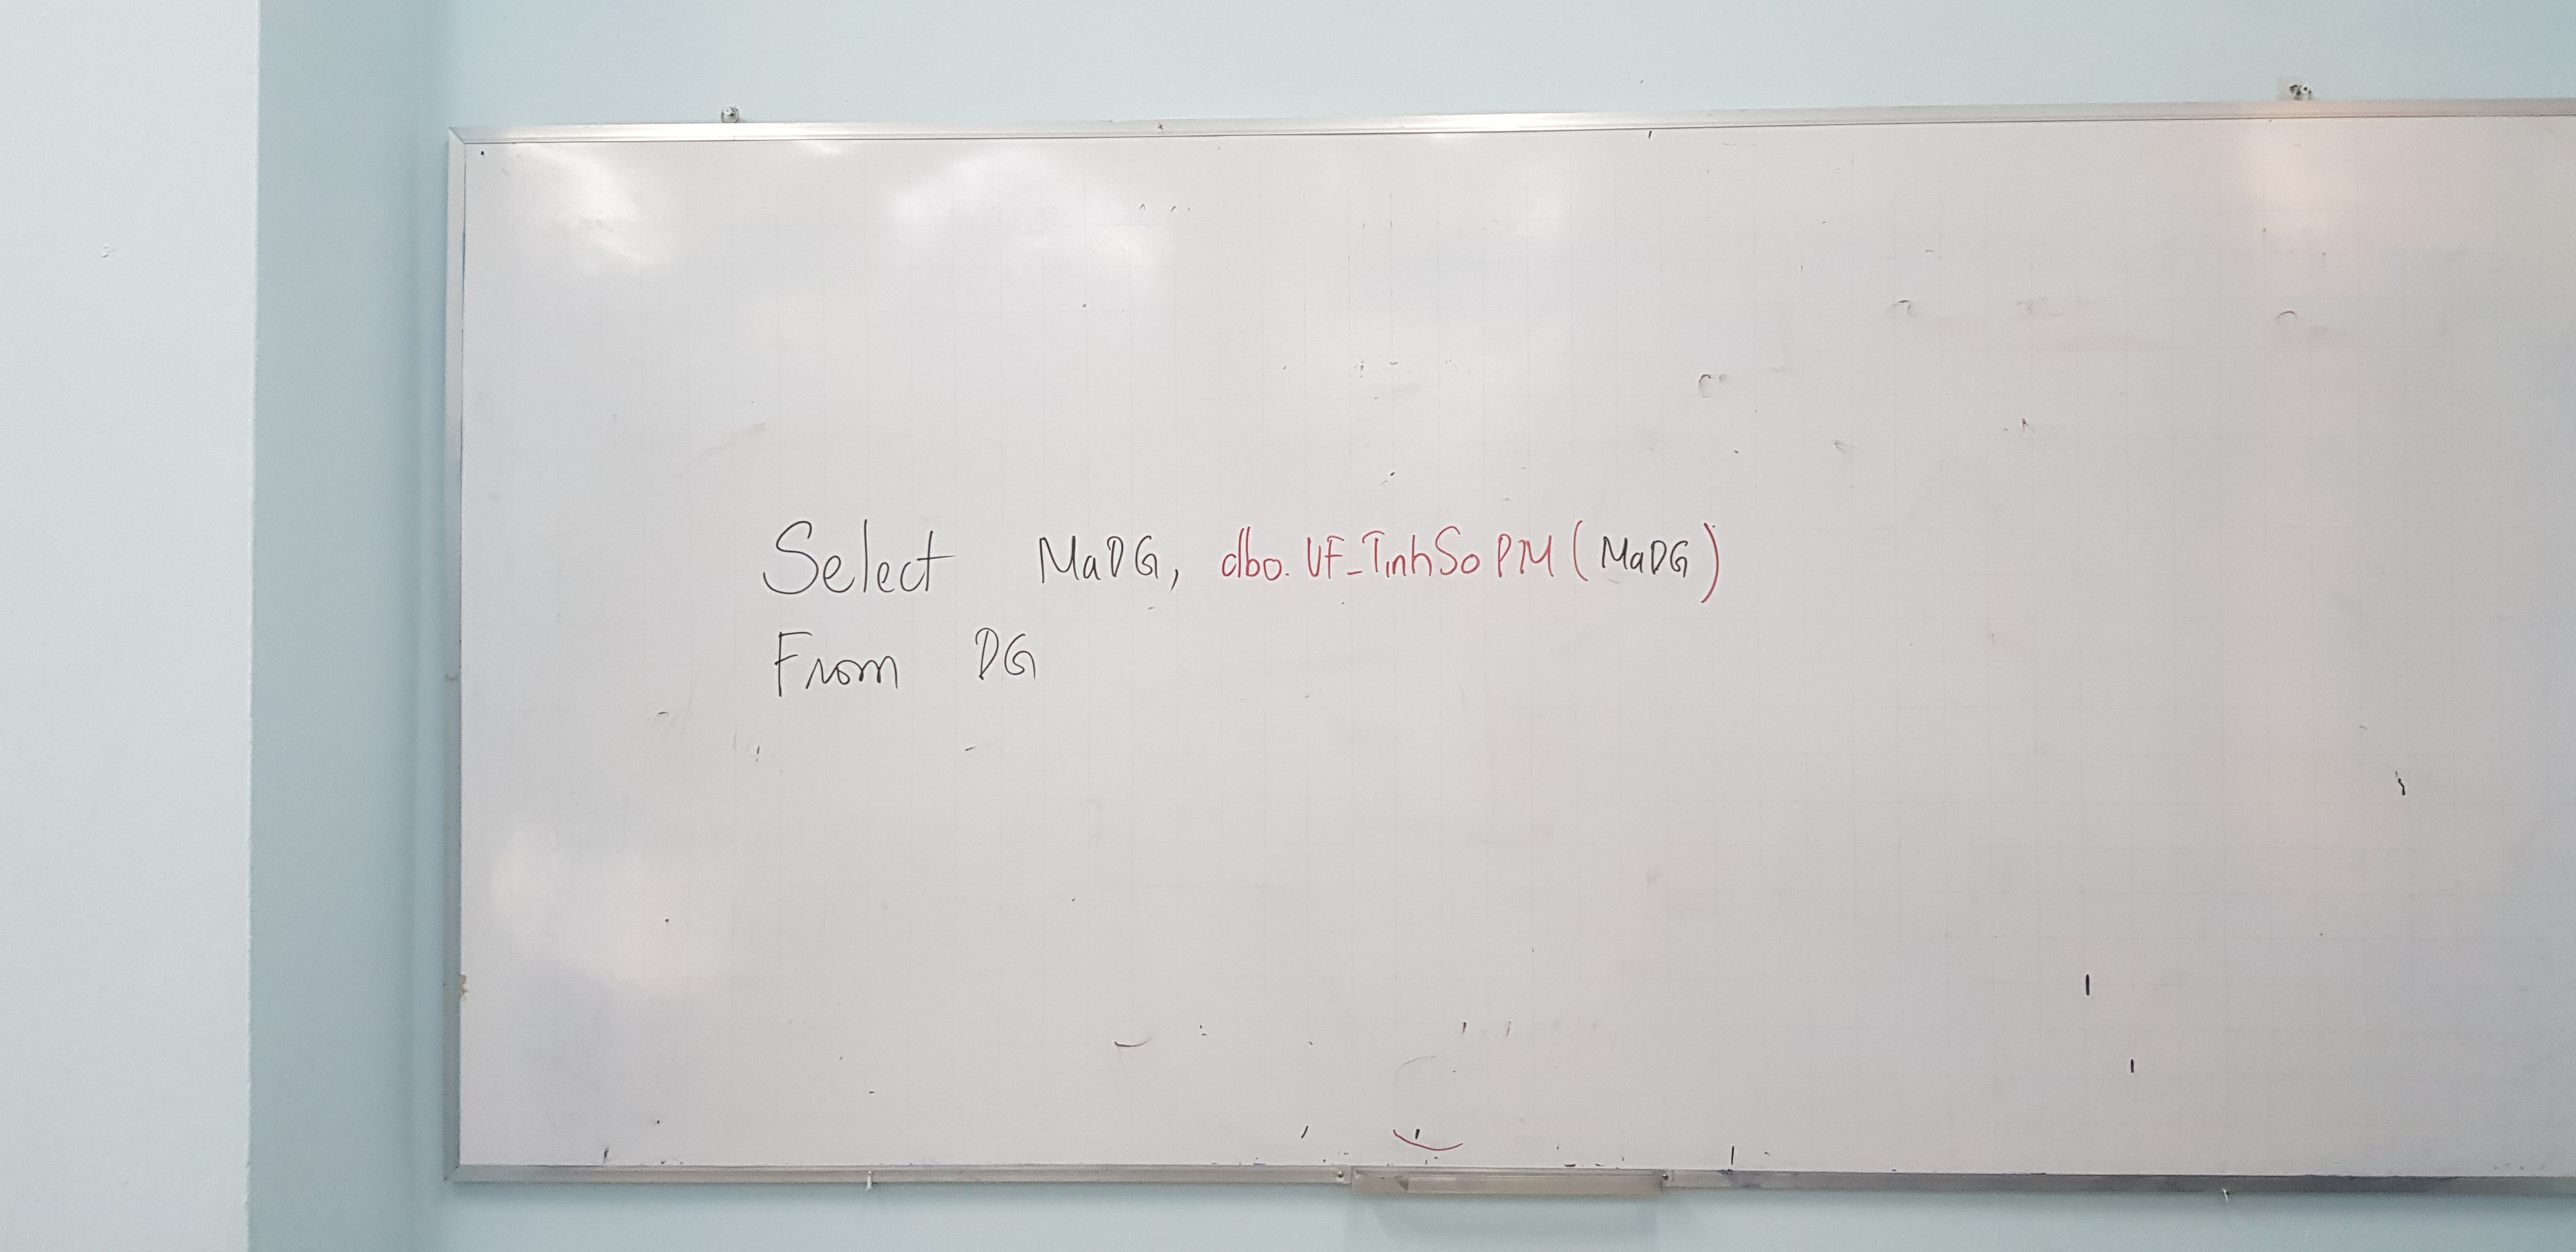 Select MaDG, dbo.UF_TinhSoPM(MaDG)
From DG